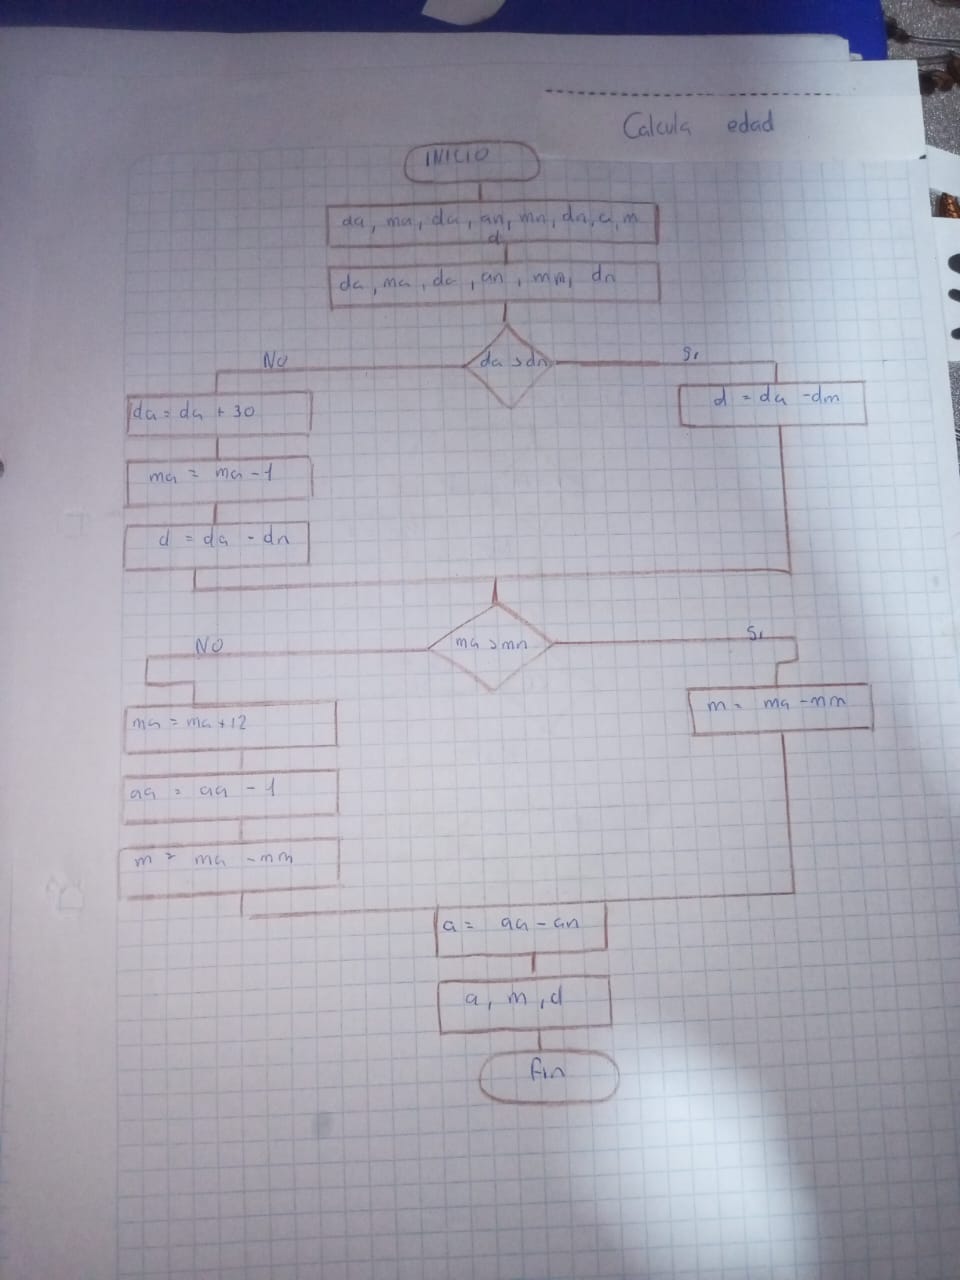 Calcula edad
INICIO
da, ma, da, an, mn, dn, a, m
d
da, ma, da, an, mn, dn
da > dn
No
Si
da = da + 30
d = da - dm
ma = ma - 1
d = da - dn
ma > mn
NO
Si
ma = ma + 12
m = ma - mn
aa = aa - 1
m = ma - mn
a = aa - an
a, m, d
Fin